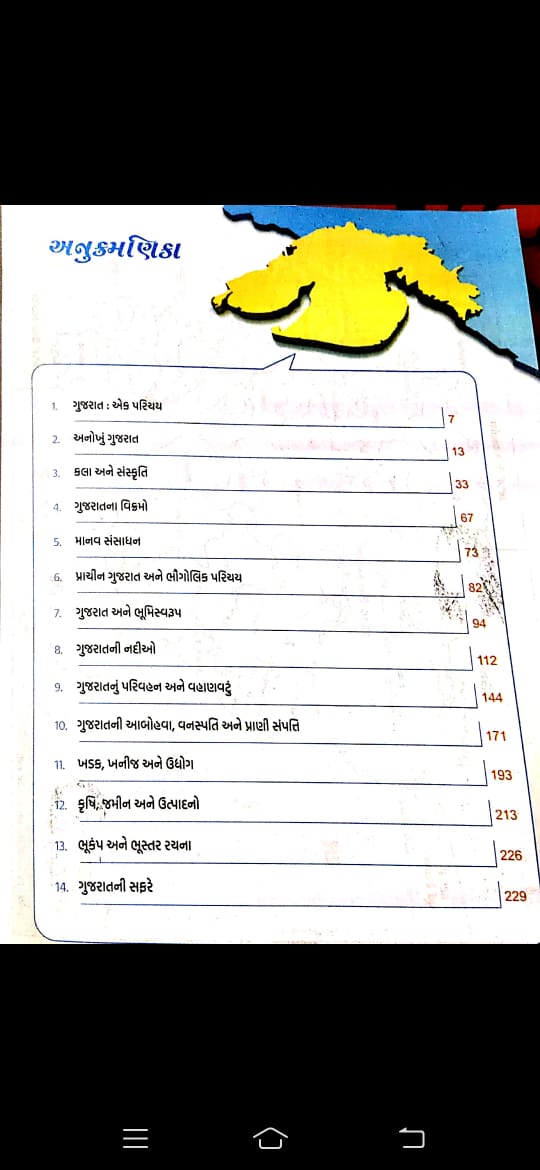 અનુક્રમણિકા
1. ગુજરાત : એક પરિચય 7
2. અનોખું ગુજરાત 13
3. કલા અને સંસ્કૃતિ 33
4. ગુજરાતના વિક્રમો 67
5. માનવ સંસાધન 73
6. પ્રાચીન ગુજરાત અને ભૌગોલિક પરિચય 82
7. ગુજરાત અને ભૂમિસ્વરૂપ 94
8. ગુજરાતની નદીઓ 112
9. ગુજરાતનું પરિવહન અને વહાણવટું 144
10. ગુજરાતની આબોહવા, વનસ્પતિ અને પ્રાણી સંપત્તિ 171
11. ખડક, ખનીજ અને ઉદ્યોગ 193
12. કૃષિ, જમીન અને ઉત્પાદનો 213
13. ભૂકંપ અને ભૂસ્તર રચના 226
14. ગુજરાતની સફરે 229